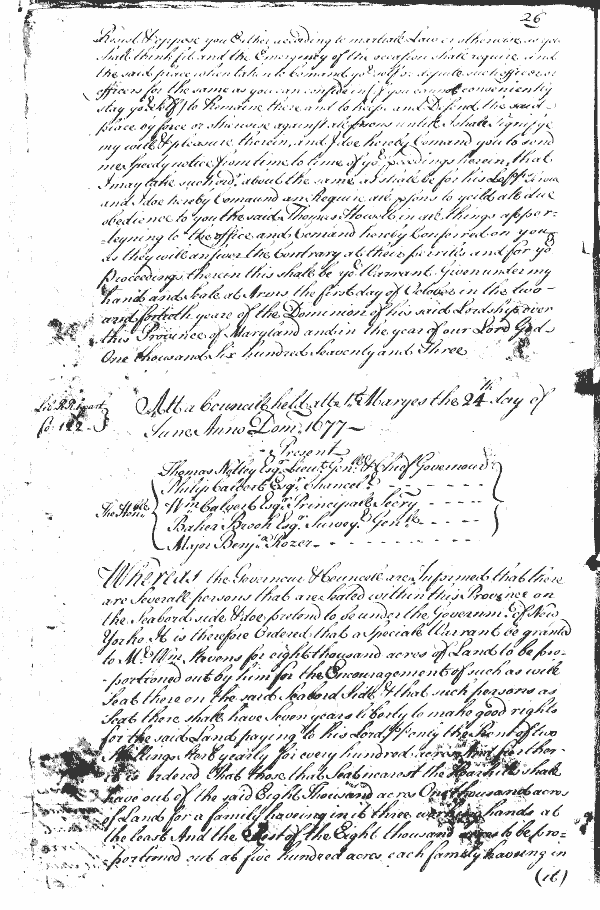 26
Resist & oppose you Either according to martiall Law or otherwise as you
shall think fit and the Emergency of the occasion shall require and
the said place when taken to Comand yo.r self or depute such officer or
officers for the same as you can confide in (if you cannot conveniently
stay yo.r self) to Remaine there and to keep and Defend the said
place by force or otherwise against all psons untill I shall signifye
my will & pleasure therein, and I doe hereby Comand you to send
me Speedy notice from time to time of yo.r pceedings herein, that
I may take such ord.r about the same as shall be for his Lopps
and I doe hereby Comaund and Require all psons to yeild all due
obedience to you the said Thomas Howell in all things apper-
teyning to the office and Comand hereby Conferred on you
as they will answer the Contrary at their perills and for yo.r
Proceedings therein this shall be yo.r Warrant Given under my
hand and Seale at Arms the first day of October in the two-
and fortieth yeare of the Dominion of his said Lordship over
this Province of Maryland and in the year of our Lord God
One thousand Six hundred Seaventy and Three
Lib. R.R. part
fo: 122
Att a Councill held att S.t Maryes the 24.th day of
June Anno Dom: 1677—
Present
Thomas Notley Esq.r Lieut.t Gen.ll & Chief Governour
Philip Calvert Esq.r Chancel.r
The Hon.ble W.m Calvert Esq.r Principall Secry
Baker Brook Esq.r Survey.r Gen.ll
Major Benj.a Rozer
Whereas the Governour & Councell are Informed that there
are Severall persons that are Seated within this Province on
the Seabord side & doe pretend to be under the Governm.t of New
Yorke It is therefore Ordered that a Speciall Warrant be granted
to M.r W.m Stevens for eight thousand acres of Land to be pro-
portioned out by him for the Encouragement of such as will
Seat there on the said Seabord Side & that such persons as
Seat there shall have Seven years liberty to make good rights
for the said Land paying to his Lord.pp only the Rent of two
Shillings Sterl yearly for every hundred acres And further
it is ordered That those that Seat nearest the Hoarkills shall
have out of the said Eight Thousand acres One thousand acres
of Land for a family haveing in it three working hands at
the least And the Rest of the Eight thousand acres to be pro-
portioned out at five hundred acres each family haveing in
(it)